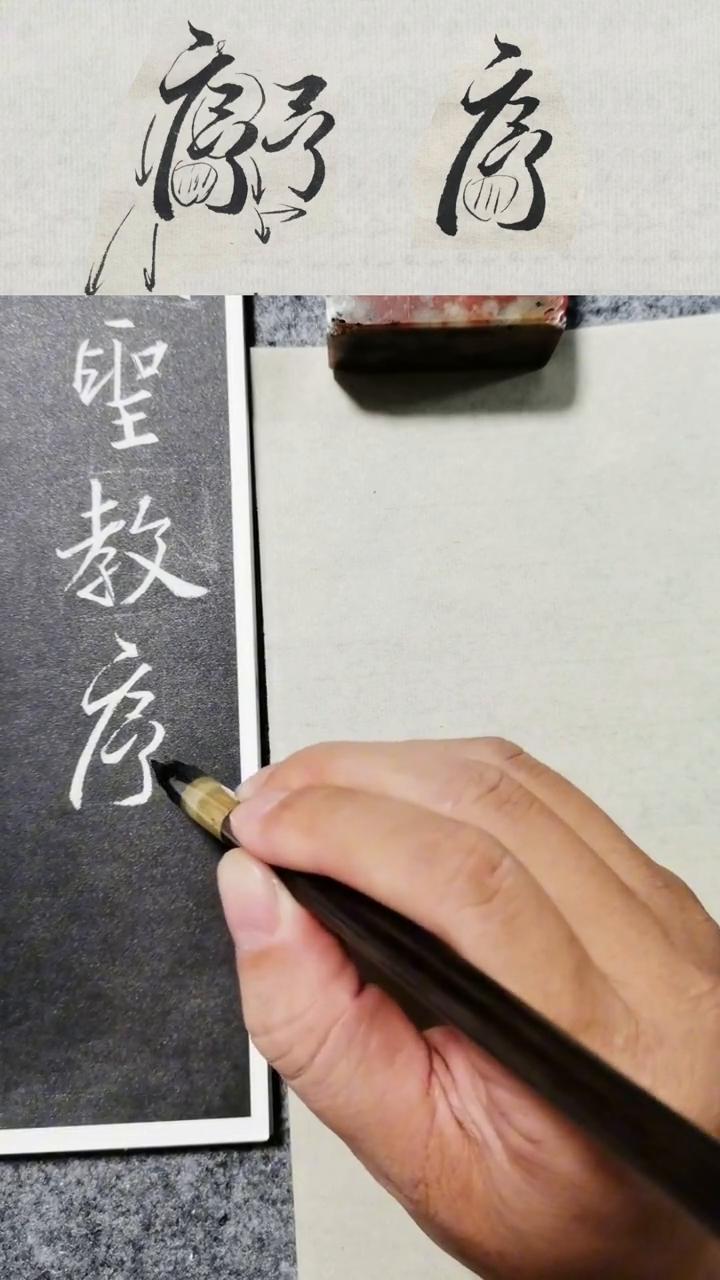 序 予 序
聖
教
序